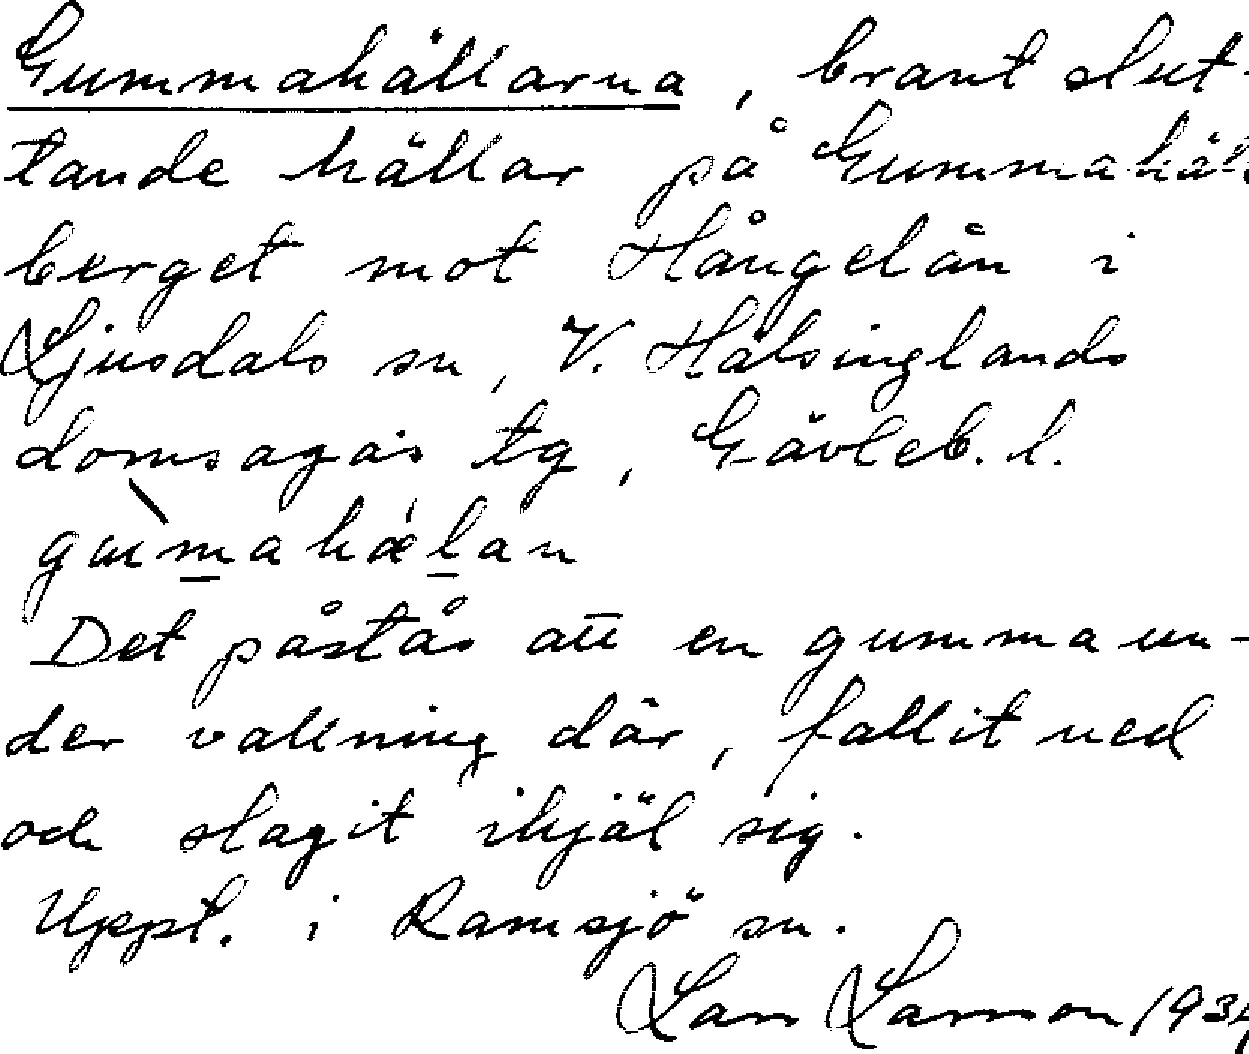 Gummahällarna, brant slut-
tande hällar på Gummahäll
berget mot Hångelån i
Ljusdals sn, V. Hälsinglands
domsagas tg, Gävleb. l.
gùmahǽlan
Det påstås att en gumma un-
der vallning där, fallit ned
och slagit ihjäl sig.
Uppt. i Ramsjö sn.
Lars Larsson 1934